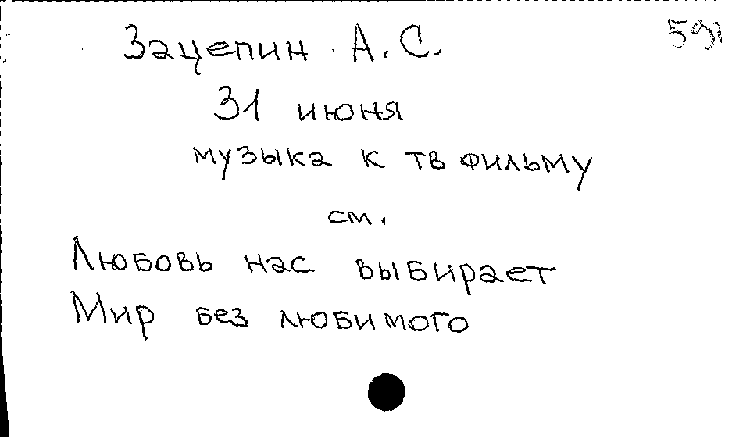 Зацепин А.С.
31 июня
музыка к тв фильму
см.
Любовь нас выбирает
Мир без любимого